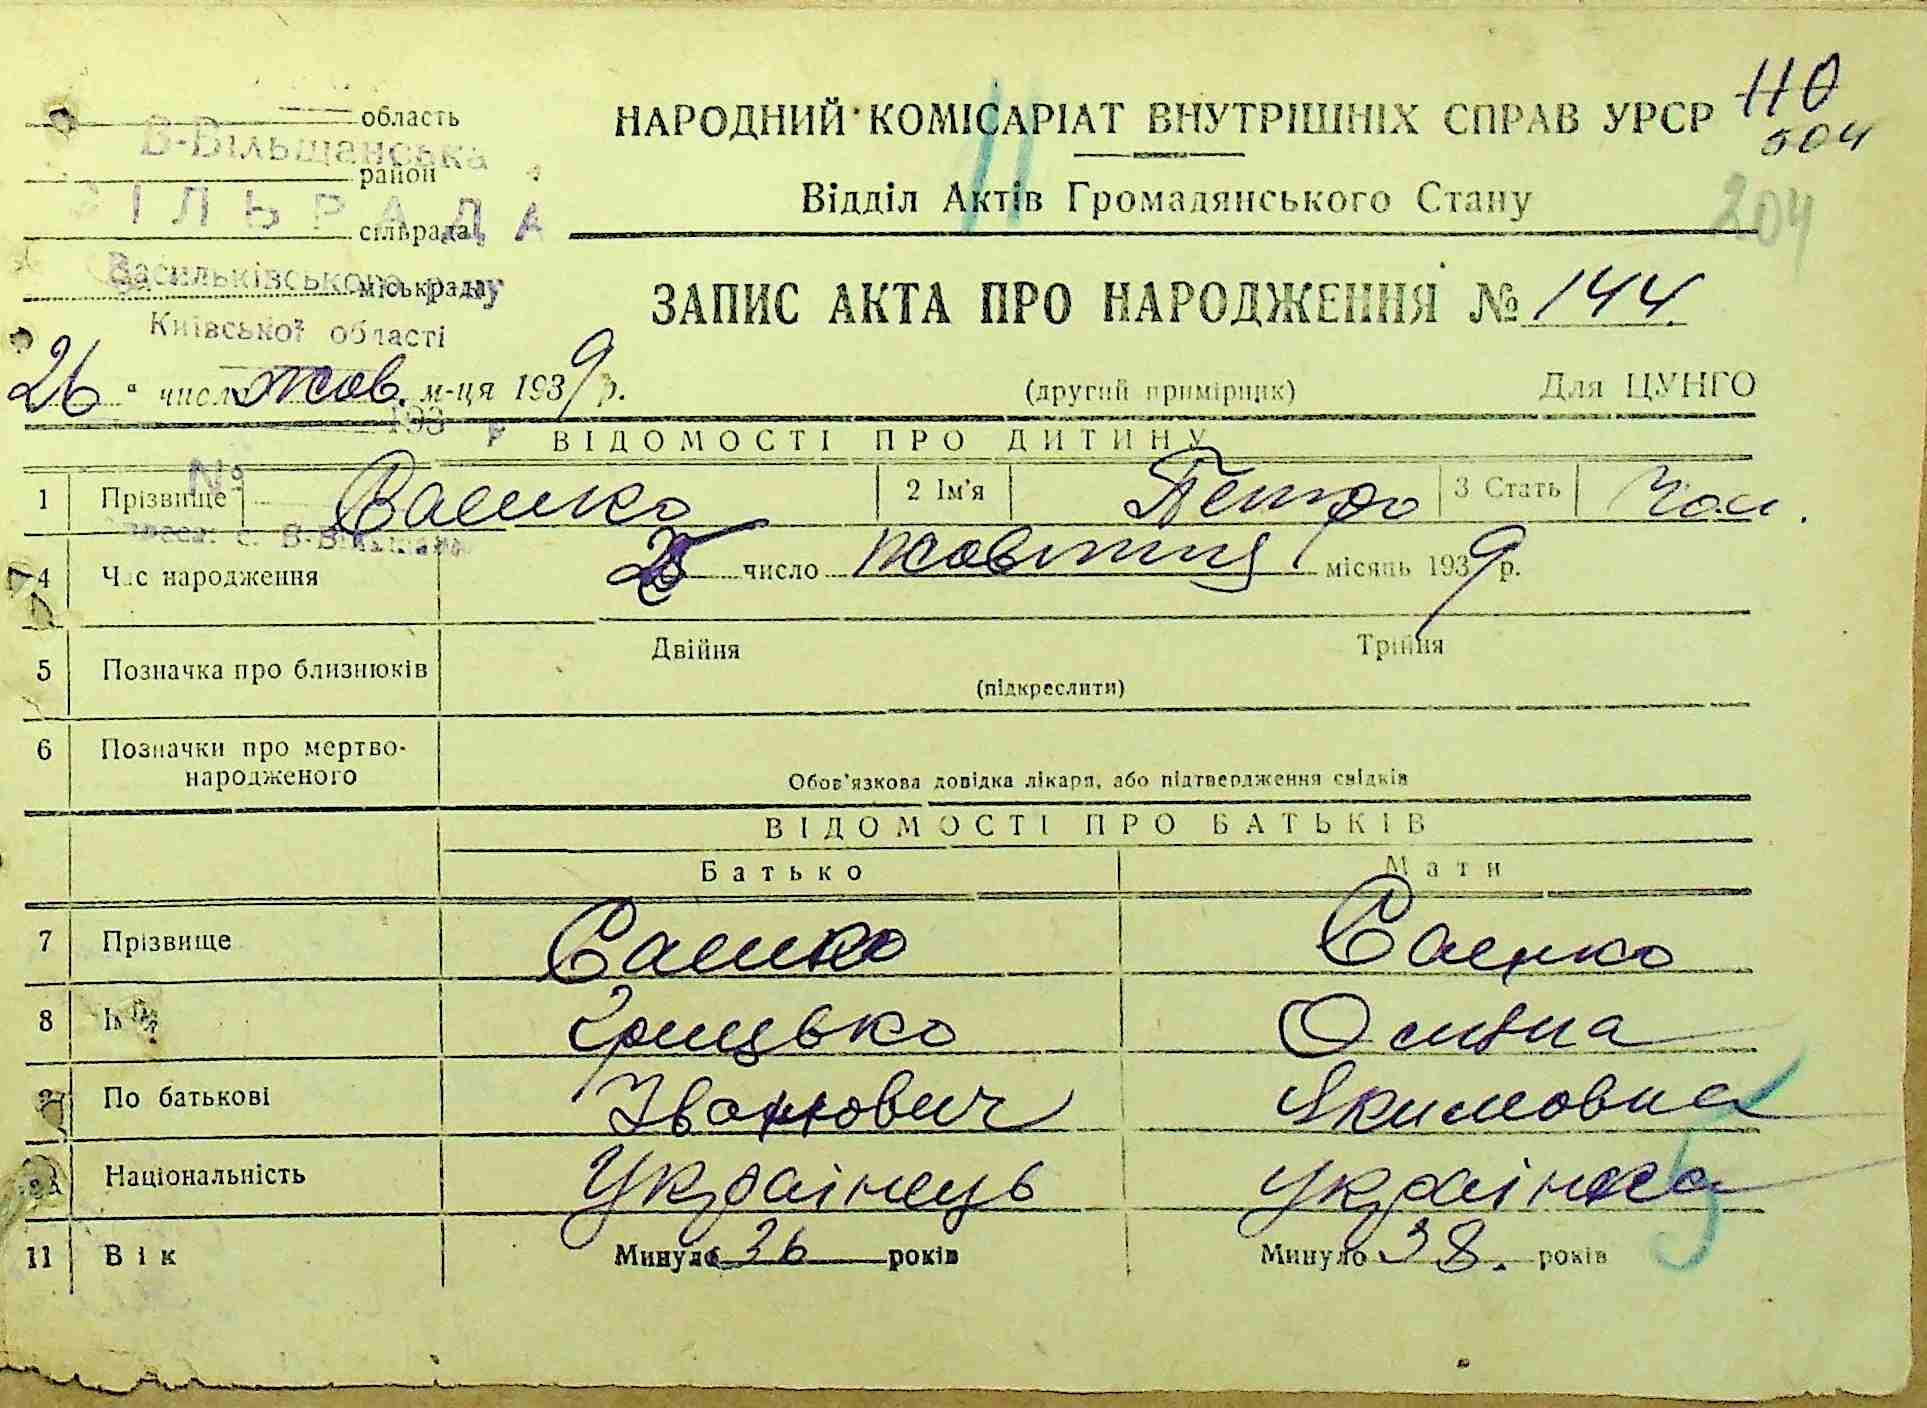 110
504
204
область
В-Вільщанська
район
СІЛЬРАДА
сільрада
Васильківського р-ну
міськрада
Київської області
НАРОДНИЙ КОМІСАРІАТ ВНУТРІШНІХ СПРАВ УРСР
Відділ Актів Громадянського Стану
ЗАПИС АКТА ПРО НАРОДЖЕННЯ № 144
26 " числа жов. м-ця 1939 р.
(другий примірник) Для ЦУНГО
193 р
ВІДОМОСТІ ПРО ДИТИНУ
№
1 Прізвище Саенко 2 Ім'я Петро 3 Стать Чол.
с. В-Вільшана
4 Час народження 25 число жовтня місяць 1939 р.
5 Позначка про близнюків Двійня Трійня
(підкреслити)
6 Позначки про мертво-
народженого
Обов'язкова довідка лікаря, або підтвердження свідків
ВІДОМОСТІ ПРО БАТЬКІВ
Батько Мати
7 Прізвище Саенко Саенко
8 Ім'я Грицько Оляна
9 По батькові Іванович Якимовна
Національність Українець Українка
11 Вік Минуло 36 років Минуло 38. років